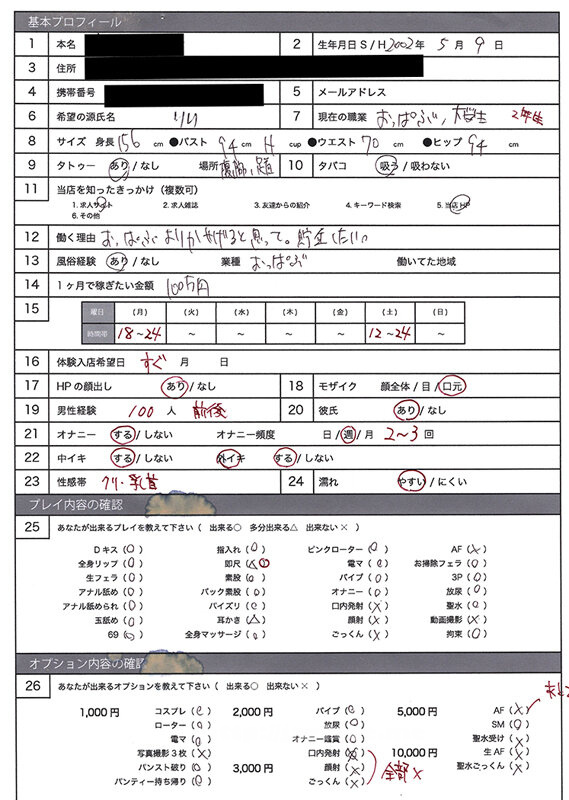 基本プロフィール
1 本名 2 生年月日 S / H 2002 年 5 月 9 日
3 住所
4 携帯番号 5 メールアドレス
6 希望の源氏名 りり 7 現在の職業 おっぱぶ, 大学生 2年生
8 サイズ 身長 156 cm ●バスト 94 cm H cup ●ウエスト 70 cm ●ヒップ 94 cm
9 タトゥー あり / なし 場所 10 タバコ 吸う / 吸わない
11 当店を知ったきっかけ（複数可）
1. 求人サイト 2. 求人雑誌 3. 友達からの紹介 4. キーワード検索 5. 当店HP
6. その他
12 働く理由 おっぱぶよりかせげると思って。貯金したい
13 風俗経験 あり / なし 業種 おっぱぶ 働いてた地域
14 1ヶ月で稼ぎたい金額 100万円
15 曜日 (月) (火) (水) (木) (金) (土) (日)
時間帯 18~24 ～ ～ ～ ～ 12~24 ～
16 体験入店希望日 すぐ 月 日
17 HPの顔出し あり / なし 18 モザイク 顔全体 / 目 / 口元
19 男性経験 100 人 前後 20 彼氏 あり / なし
21 オナニー する / しない オナニー頻度 日 / 週 / 月 2~3 回
22 中イキ する / しない 外イキ する / しない
23 性感帯 クリ・乳首 24 濡れ やすい / にくい
プレイ内容の確認
25 あなたが出来るプレイを教えて下さい（ 出来る○ 多分出来る△ 出来ない× ）
Dキス (○) 指入れ (○) ピンクローター (○) AF (×)
全身リップ (○) 即尺 (△○) 電マ (○) お掃除フェラ (○)
生フェラ (○) 素股 (○) バイブ (○) 3P (○)
アナル舐め (○) バック素股 (○) オナニー (○) 放尿 (○)
アナル舐められ (○) パイズリ (○) 口内発射 (×) 聖水 (○)
玉舐め (○) 耳かき (△) 顔射 (×) 動画撮影 (×)
69 (○) 全身マッサージ (○) ごっくん (×) 拘束 (○)
オプション内容の確認
26 あなたが出来るオプションを教えて下さい（ 出来る○ 出来ない× ）
1,000円 コスプレ (○) 2,000円 バイブ (○) 5,000円 AF (×)
ローター (○) 放尿 (○) SM (○)
電マ (○) オナニー鑑賞 (○) 聖水受け (×)
写真撮影3枚 (×) 口内発射 (×) 10,000円 生AF (×)
パンスト破り (○) 3,000円 顔射 (×) 全部× 聖水ごっくん (×)
パンティー持ち帰り (○) ごっくん (×)